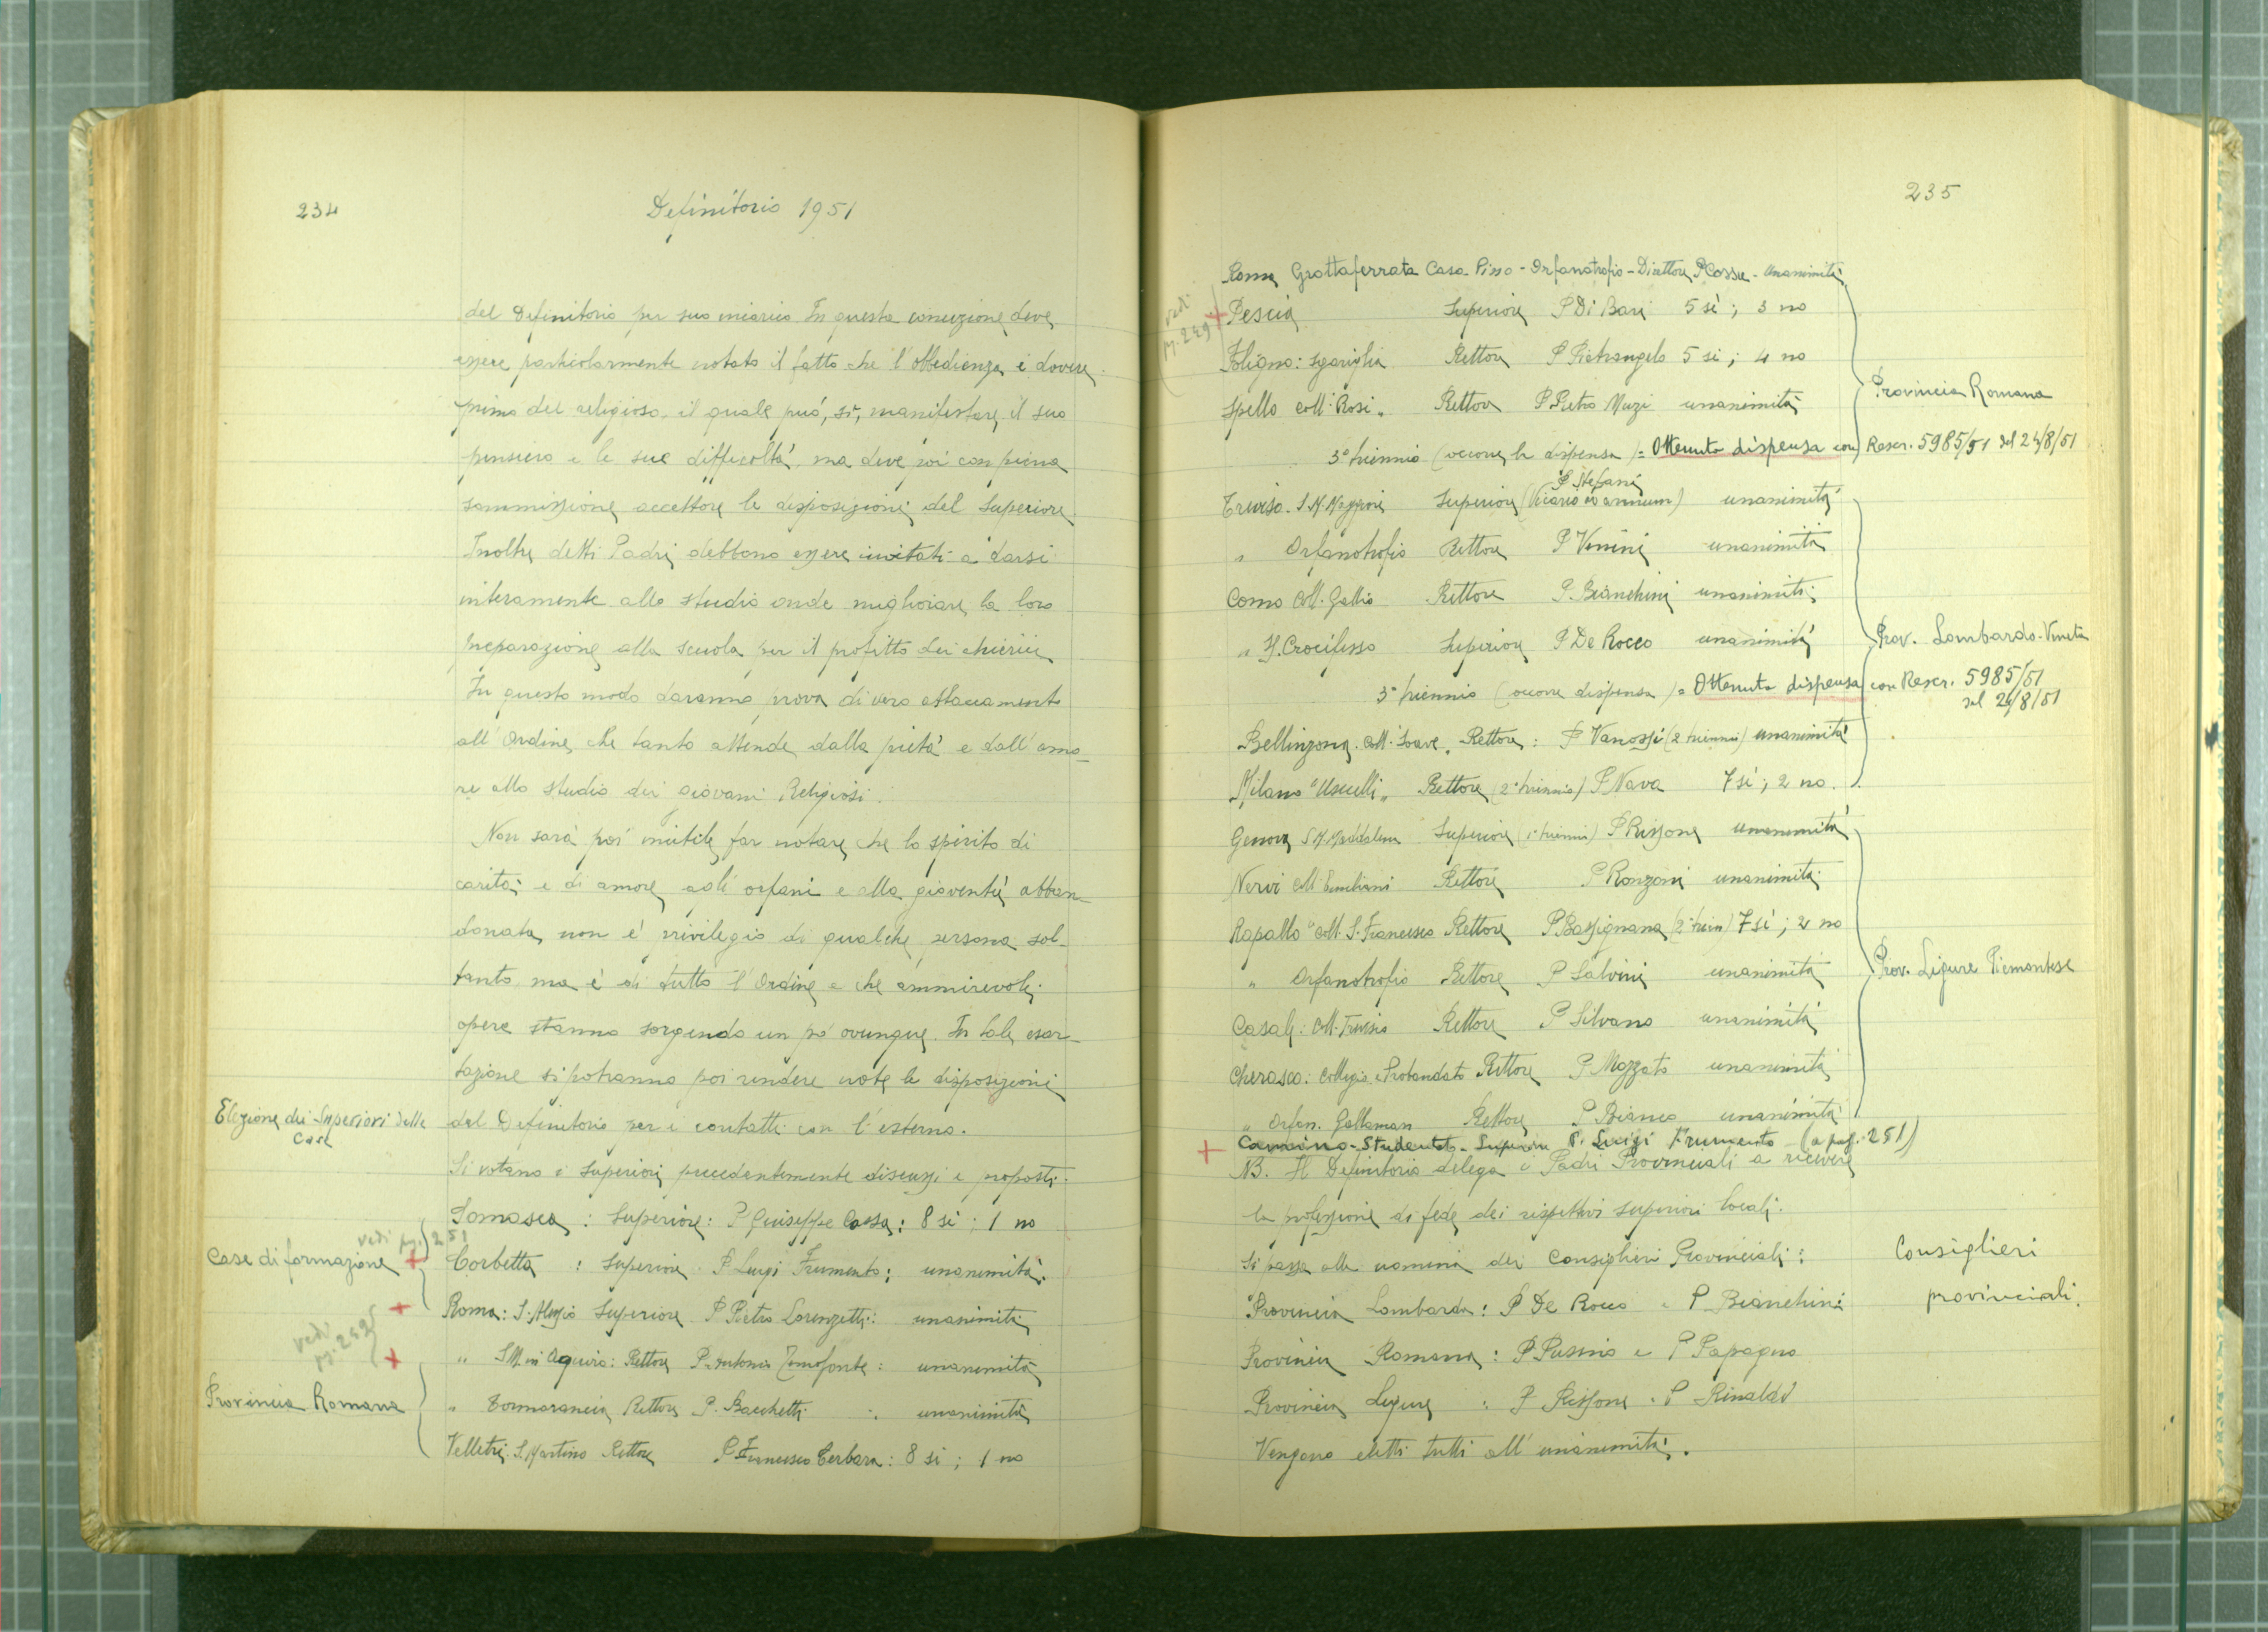 234
Definitorio 1951
del Definitorio per suo incarico. In questa comunizione deve
essere particolarmente notato il fatto che l'obbedienza è dovere
primo del religioso il quale può, sì, manifestare il suo
pensiero e le sue difficoltà, ma deve poi con piena
sommissione accettare le disposizioni del Superiore.
Inoltre detti Padri debbono essere invitati a darsi
interamente allo studio onde migliorare la loro
preparazione alla scuola per il profitto dei chierici
In questo modo daranno prova di vero attaccamento
all'Ordine che tanto attende dalla pietà e dall'amo_
re allo studio dei giovani Religiosi.
Non sarà poi inutile far notare che lo spirito di
carità e di amore agli orfani e alla gioventù abban_
donata non è privilegio di qualche persona sol_
tanto ma è di tutto l'Ordine e che ammirevoli
opere stanno sorgendo un po' ovunque. In tale esor_
tazione si potranno poi rendere note le disposizioni
Elezione dei Superiori delle
Case
del Definitorio per i contatti con l'esterno.
Si votano i Superiori precedentemente discussi e proposti.
Somasca : Superiore: P. Giuseppe Cossa: 8 sì ; 1 no
vedi pg. 251
Case di formazione + Corbetta : Superiore P. Luigi Frumento: unanimità.
+ Roma: S. Alessio Superiore P. Pietro Lorenzetti: unanimità
vedi
pg. 242
+ " S.M. in Aquiro: Rettore P. Antonio Temofonte : unanimità
Provincia Romana " Tormarancia Rettore P. Bacchetti : unanimità
Velletri S. Martino Rettore P. Francesco Cerbara: 8 sì ; 1 no
235
Roma Grottaferrata Casa Pino - Orfanotrofio - Direttore P. Cossu - Unanimità
vedi
pg. 249
+ Pescia Superiore P. Di Bari 5 sì ; 3 no
Foligno: Sgariglia Rettore P. Pietrangelo 5 sì ; 4 no
Provincia Romana
Spello Coll. Rosi " Rettore P. Pietro Muzi unanimità
3° triennio (occorre la dispensa) = Ottenuta dispensa con Rescr. 5985/51 del 24/8/51
P. Stefani
Treviso. S.M. Maggiore Superiore (Vicario ad annum) unanimità
" Orfanotrofio Rettore P. Venini unanimità
Como Coll. Gallio Rettore P. Bianchini unanimità
" SS. Crocifisso Superiore P. De Rocco unanimità
Prov. Lombardo-Veneta
3° triennio (occorre dispensa) = Ottenuta dispensa con Rescr. 5985/51
del 24/8/51
Bellinzona. Coll. Soave. Rettore: P. Vanossi (2 triennio) unanimità
Milano "Usuelli" Rettore (2° triennio) P. Nava 7 sì ; 2 no.
Genova S.M. Maddalena Superiore (1° triennio) P. Rissone unanimità
Nervi Coll. Emiliani Rettore P. Ronzoni unanimità
Rapallo "Coll. S. Francesco Rettore P. Bassignana (2° trien) 7 sì ; 2 no
" Orfanotrofio Rettore P. Salvini unanimità
Prov. Ligure Piemontese
Casale: Coll. Treviso Rettore P. Silvano unanimità
Cherasco: Collegio e Probandato Rettore P. Mozzato unanimità
" Orfan. Gallaman Rettore P. Bianco unanimità
+ Camino - Studentato - Superiore P. Luigi Frumento (a pag. 251)
NB. Il Definitorio delega i Padri Provinciali a ricevere
la professione di fede dei rispettivi superiori locali.
Si passa alla nomina dei Consiglieri Provinciali:
Consiglieri
provinciali.
Provincia Lombarda: P. De Rocco e P. Bianchini
Provincia Romana: P. Pusino e P. Papagno
Provincia Ligure : P. Rissone e P. Rinaldi
Vengono eletti tutti all'unanimità.